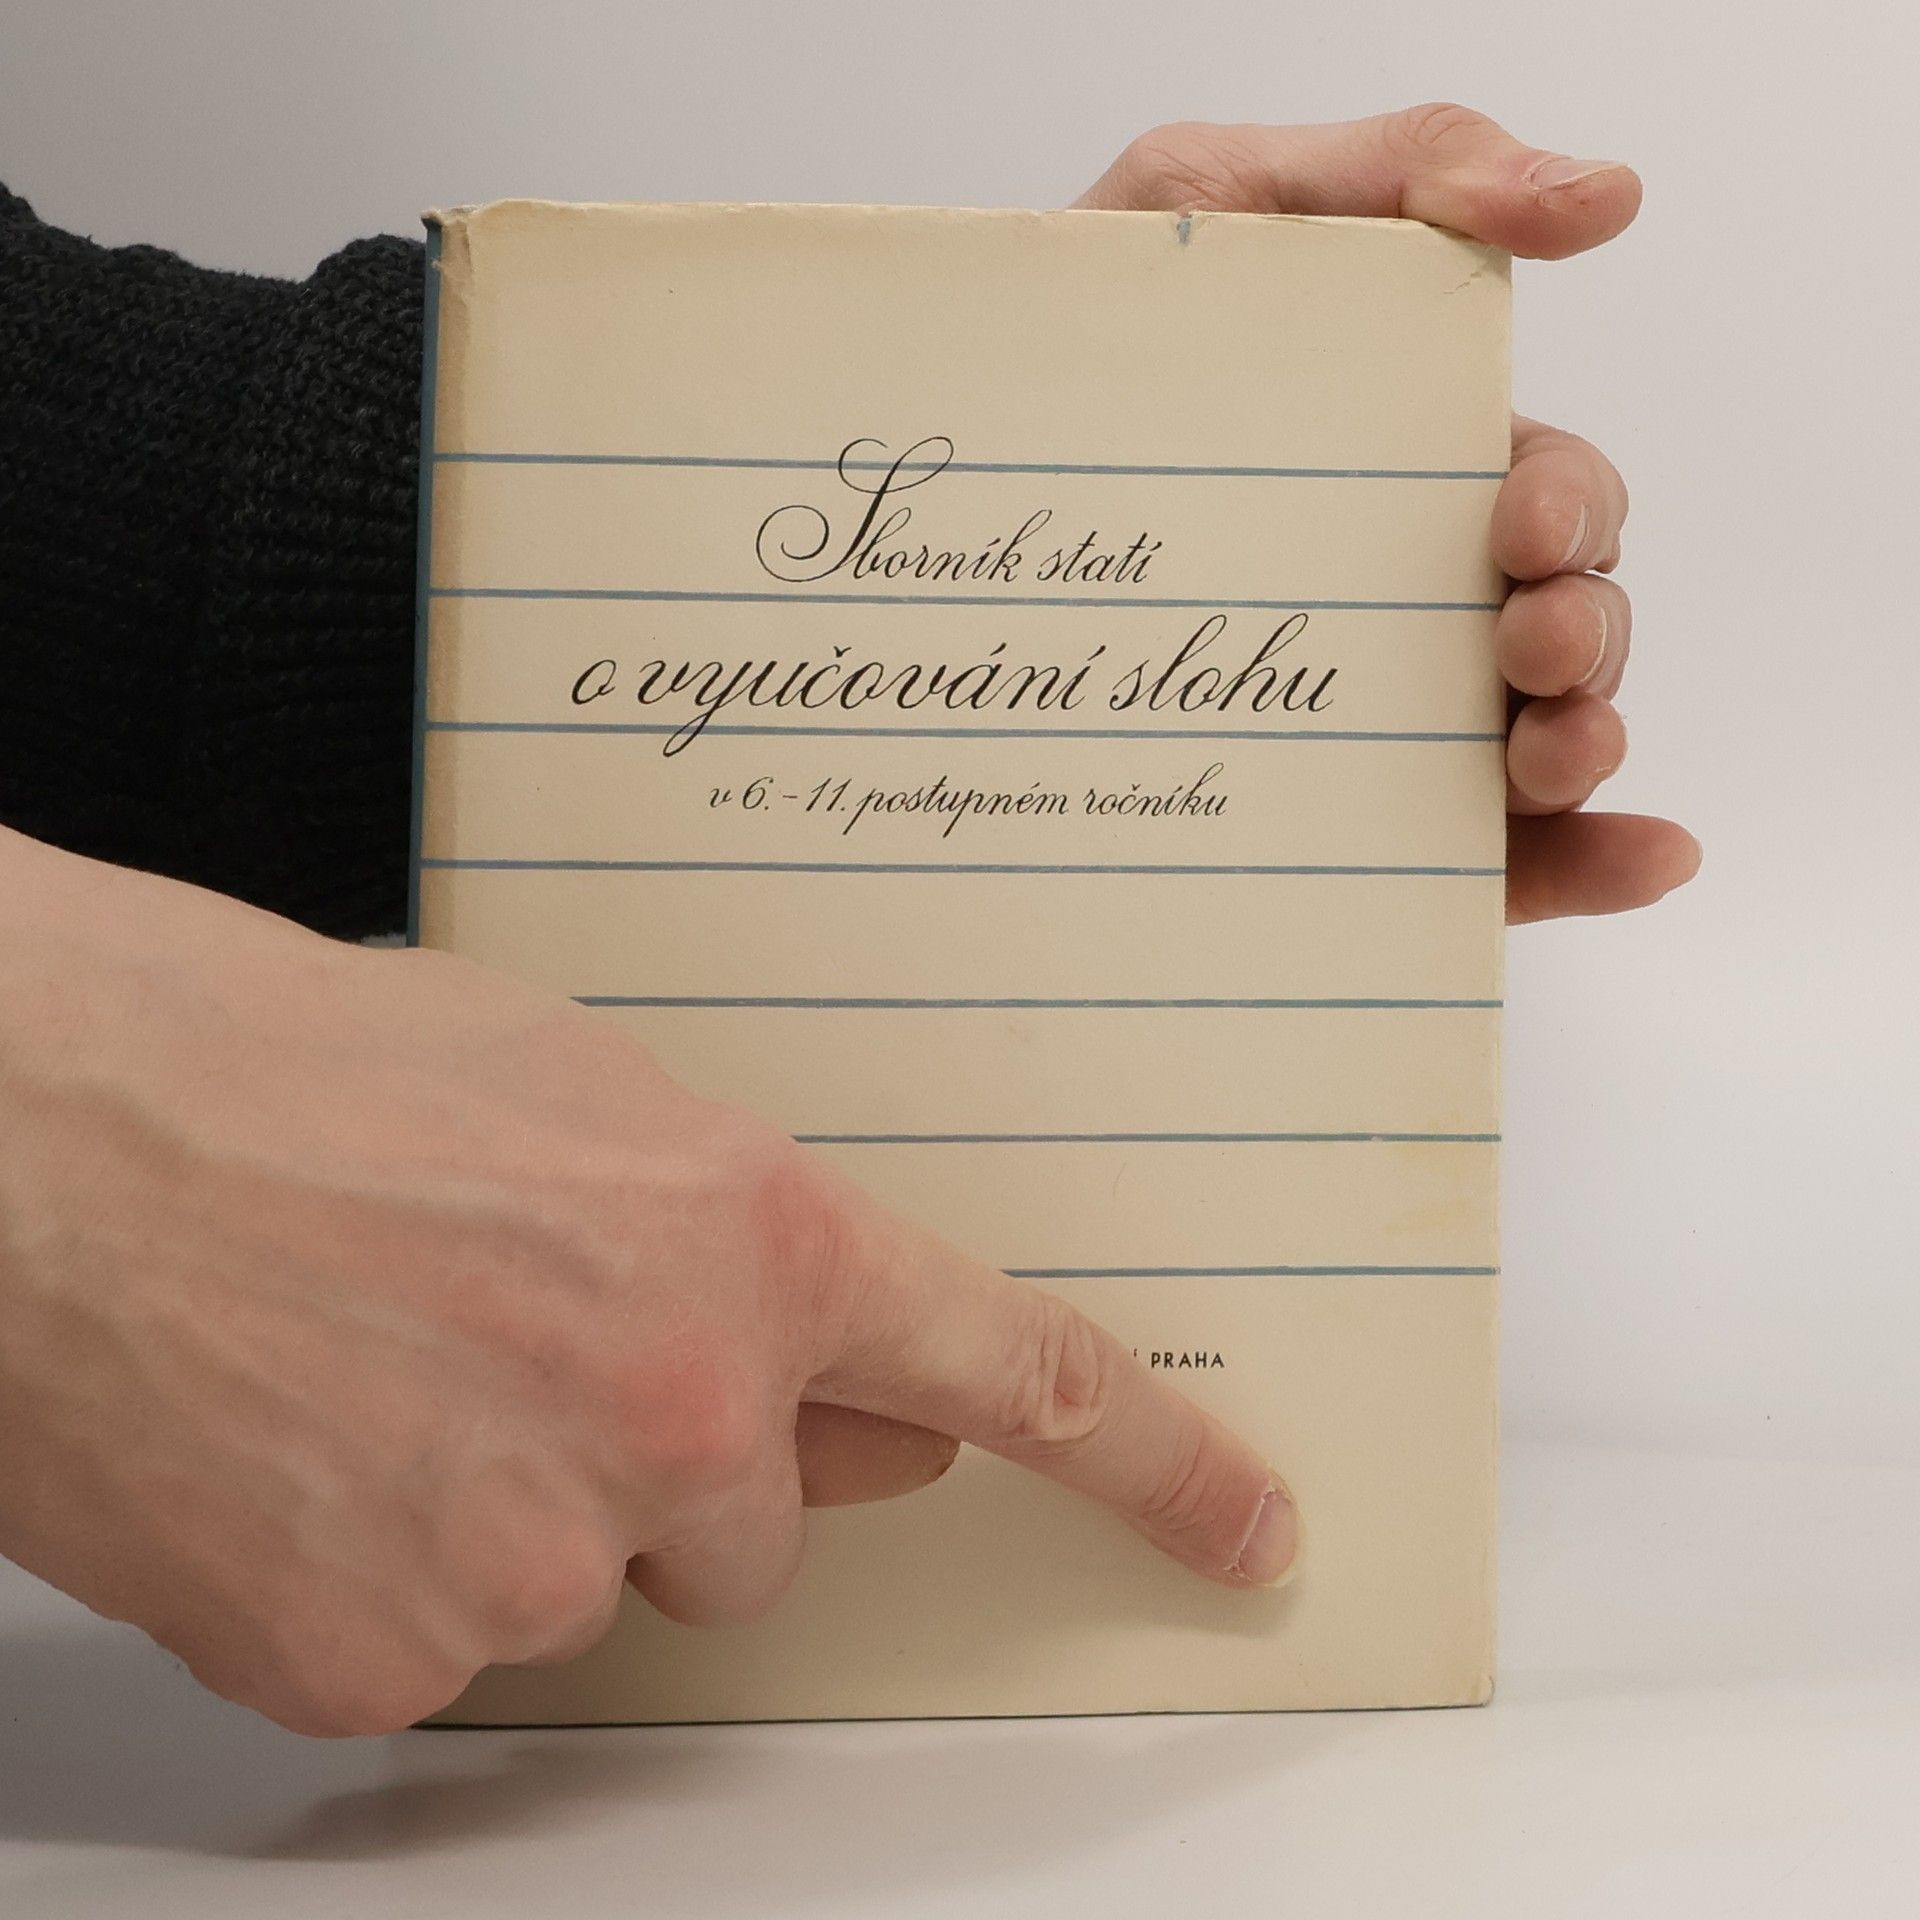 Sborník statí
o vyučování slohu
v 6.-11. postupném ročníku
PRAHA